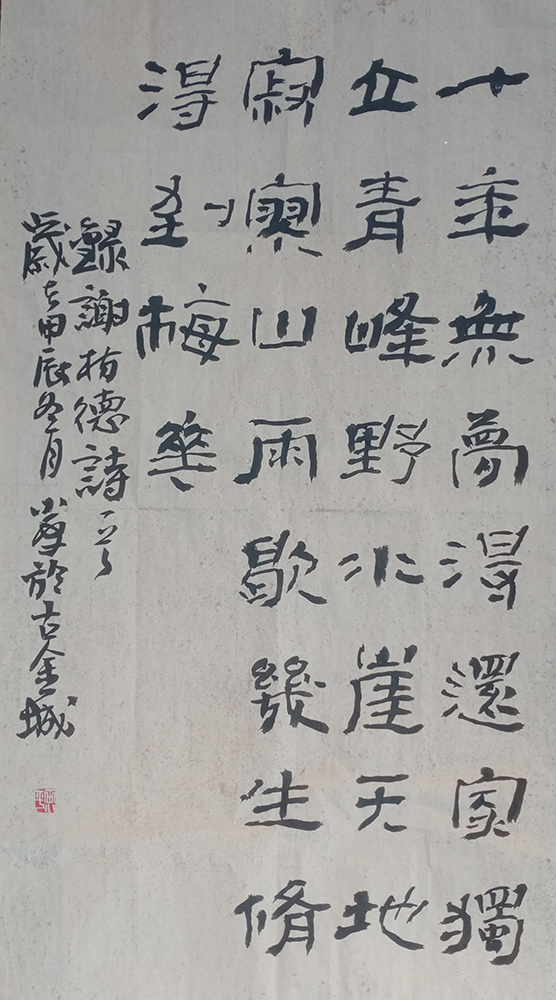 十年無夢得還家獨
立青峰野水崖天地
寂寥山雨歇幾生脩
得到梅華
錄謝枋德詩一首
歲在甲辰冬月 於古金城